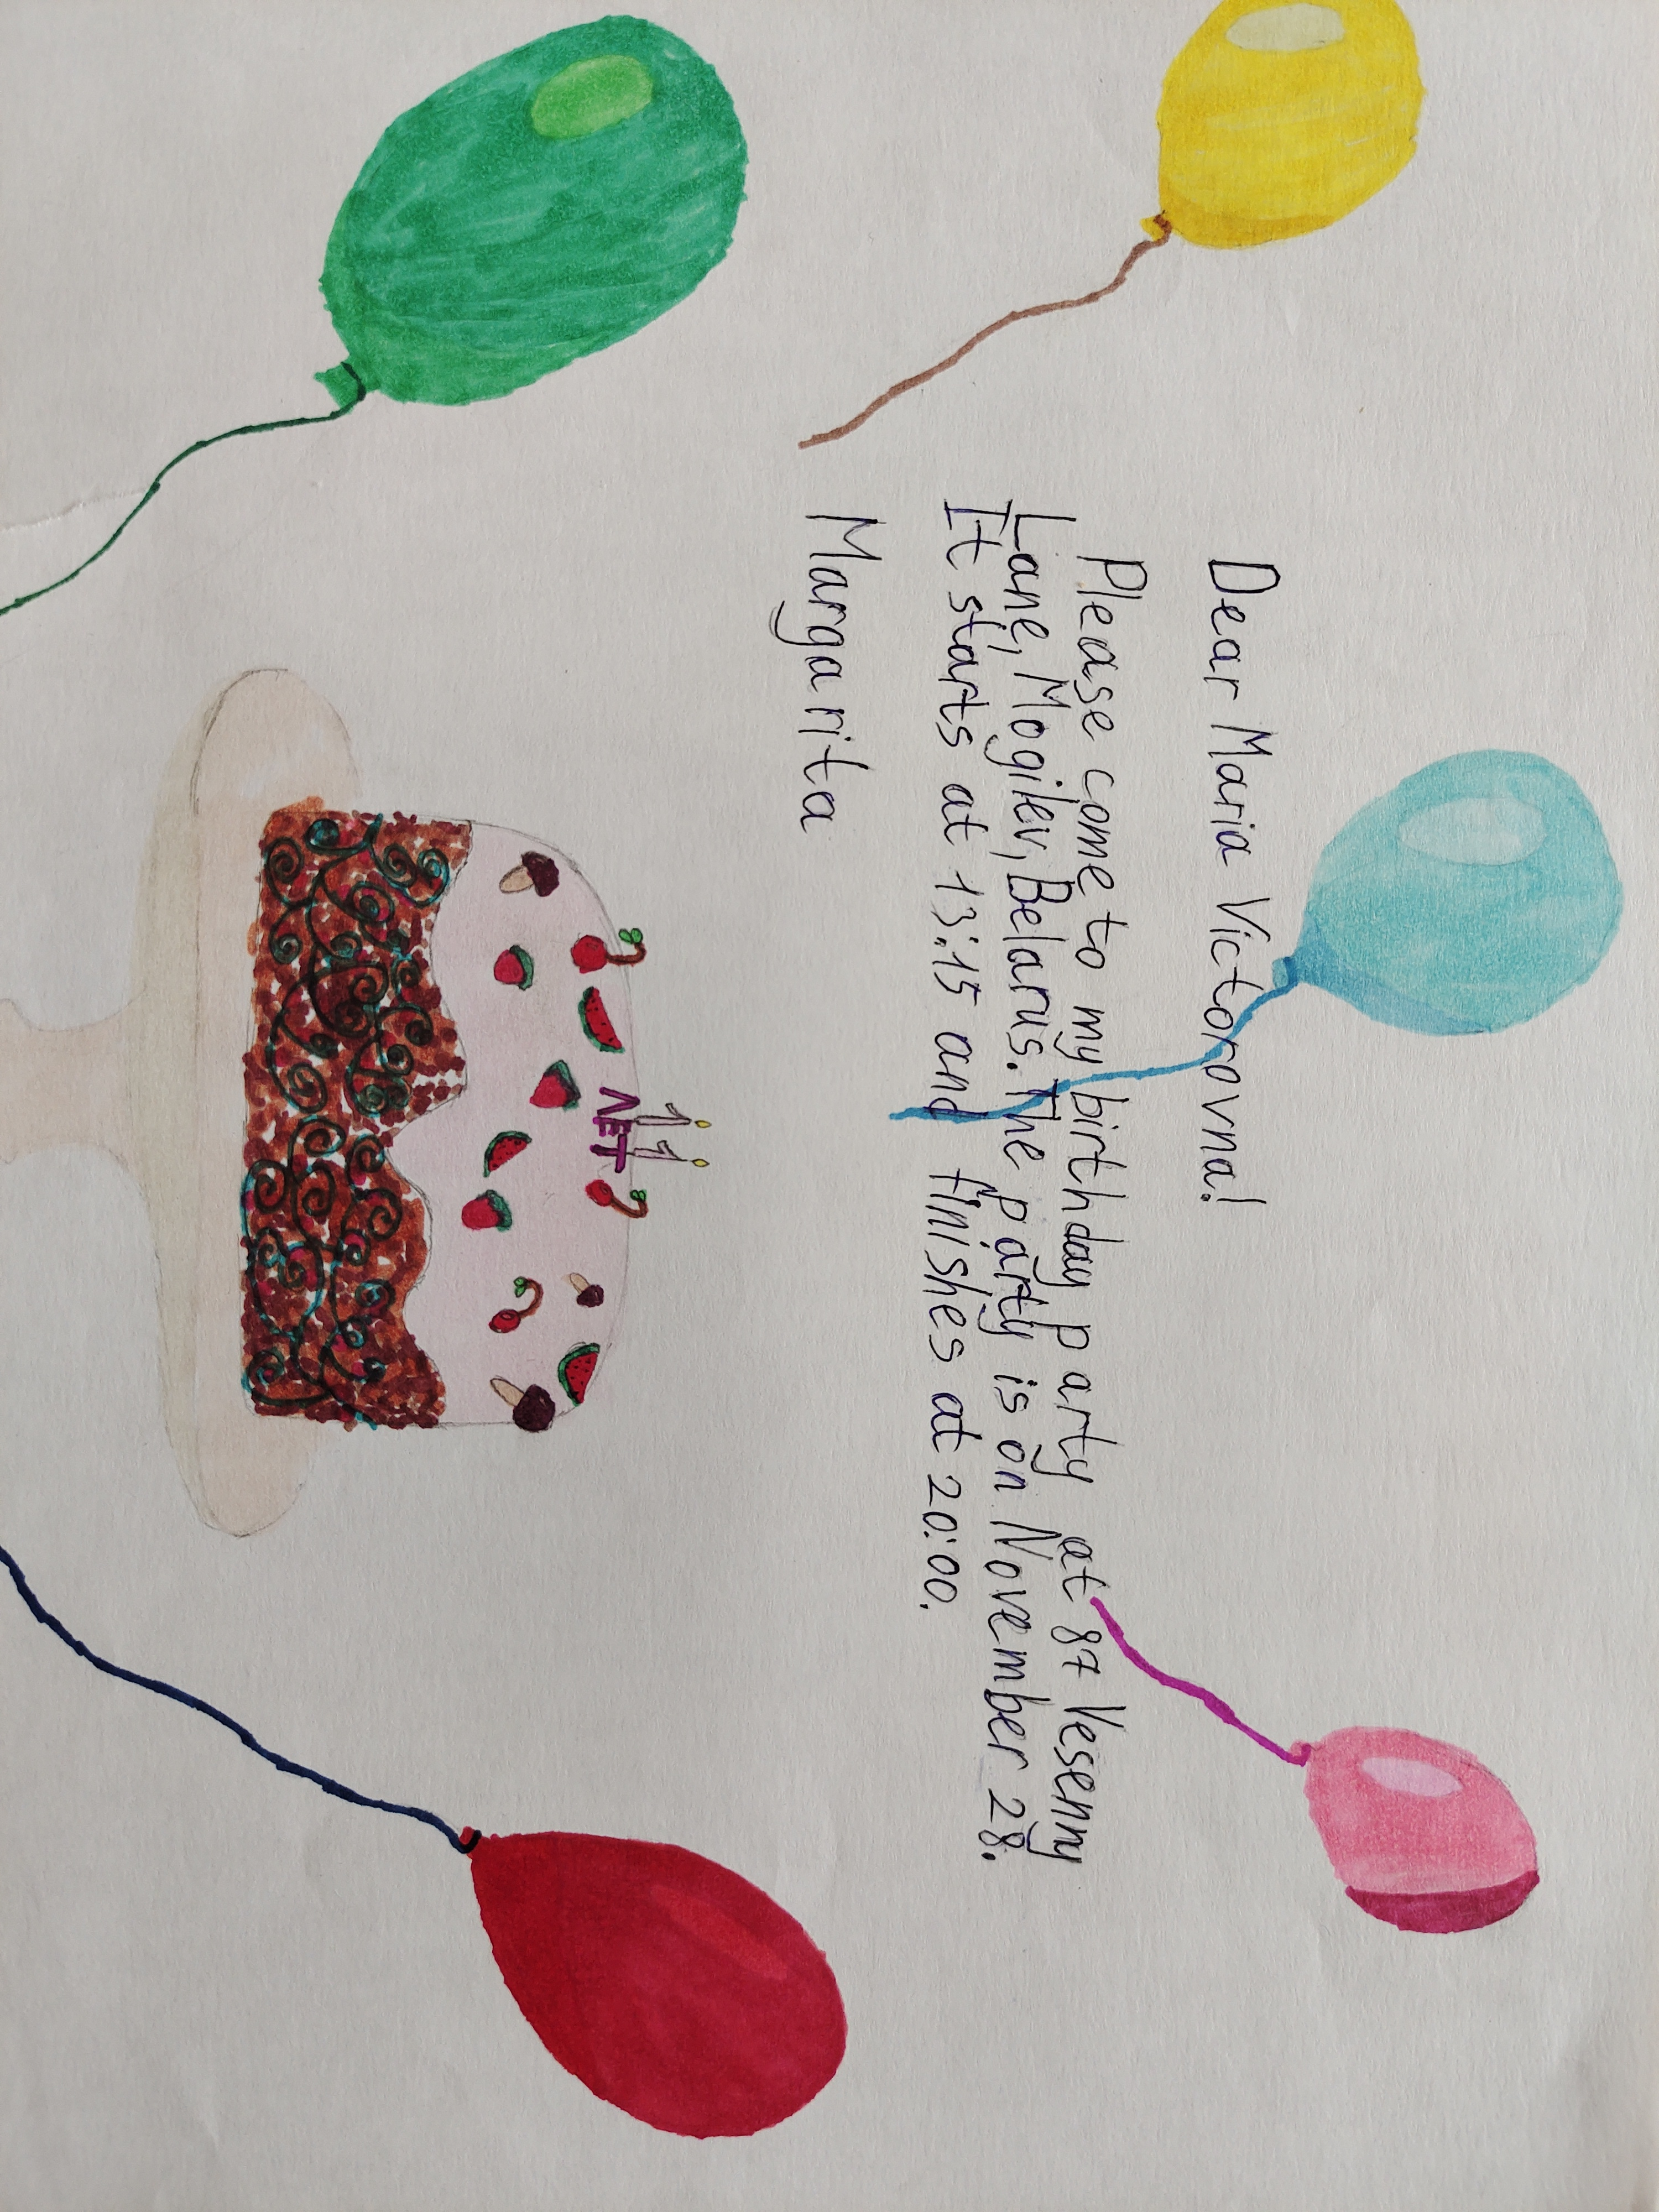 Dear Maria Victorovna!
Please come to my birthday party at 87 Vesenny
Lane, Mogilev, Belarus. The party is on November 28.
It starts at 13:15 and finishes at 20:00.
Margarita
11
ЛЕТ